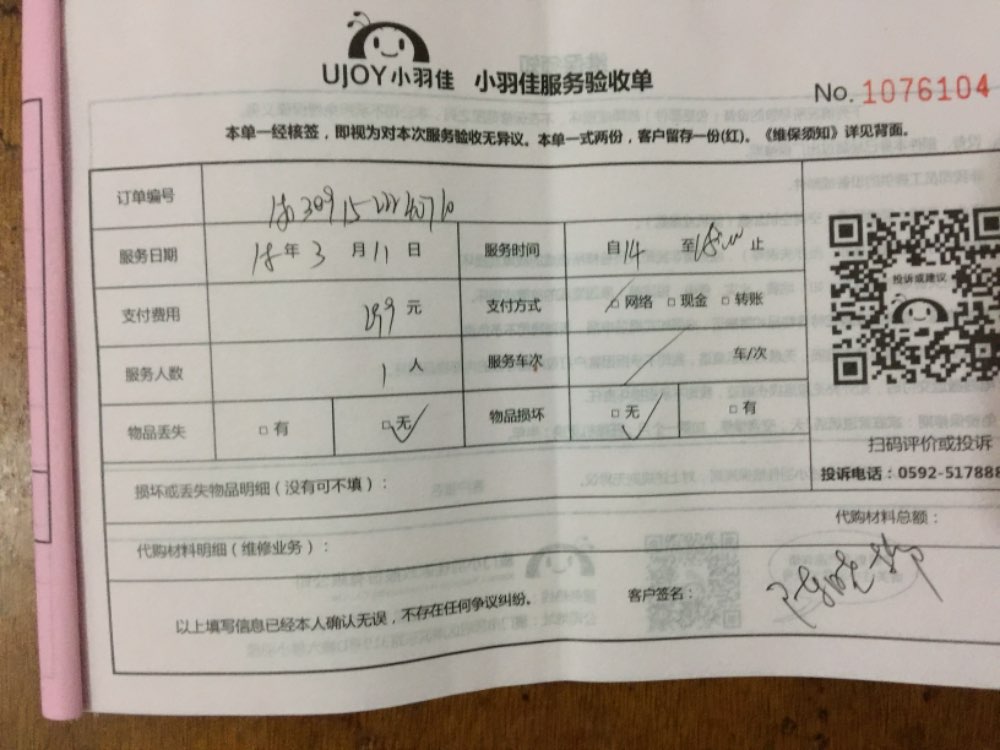 UJOY小羽佳 小羽佳服务验收单
No. 1076104
本单一经核签，即视为对本次服务验收无异议。本单一式两份，客户留存一份(红)。《维保须知》详见背面。
订单编号
服务日期 18年3月11日 服务时间 自14至18:00止
支付费用 299元 支付方式 □网络 □现金 □转账
投诉或建议
服务人数 1人 服务车次 车/次
物品丢失 □有 □无 物品损坏 □无 □有
扫码评价或投诉
损坏或丢失物品明细（没有可不填）：
投诉电话：0592-517888
代购材料总额：
代购材料明细（维修业务）：
客户签名：
以上填写信息已经本人确认无误，不存在任何争议纠纷。